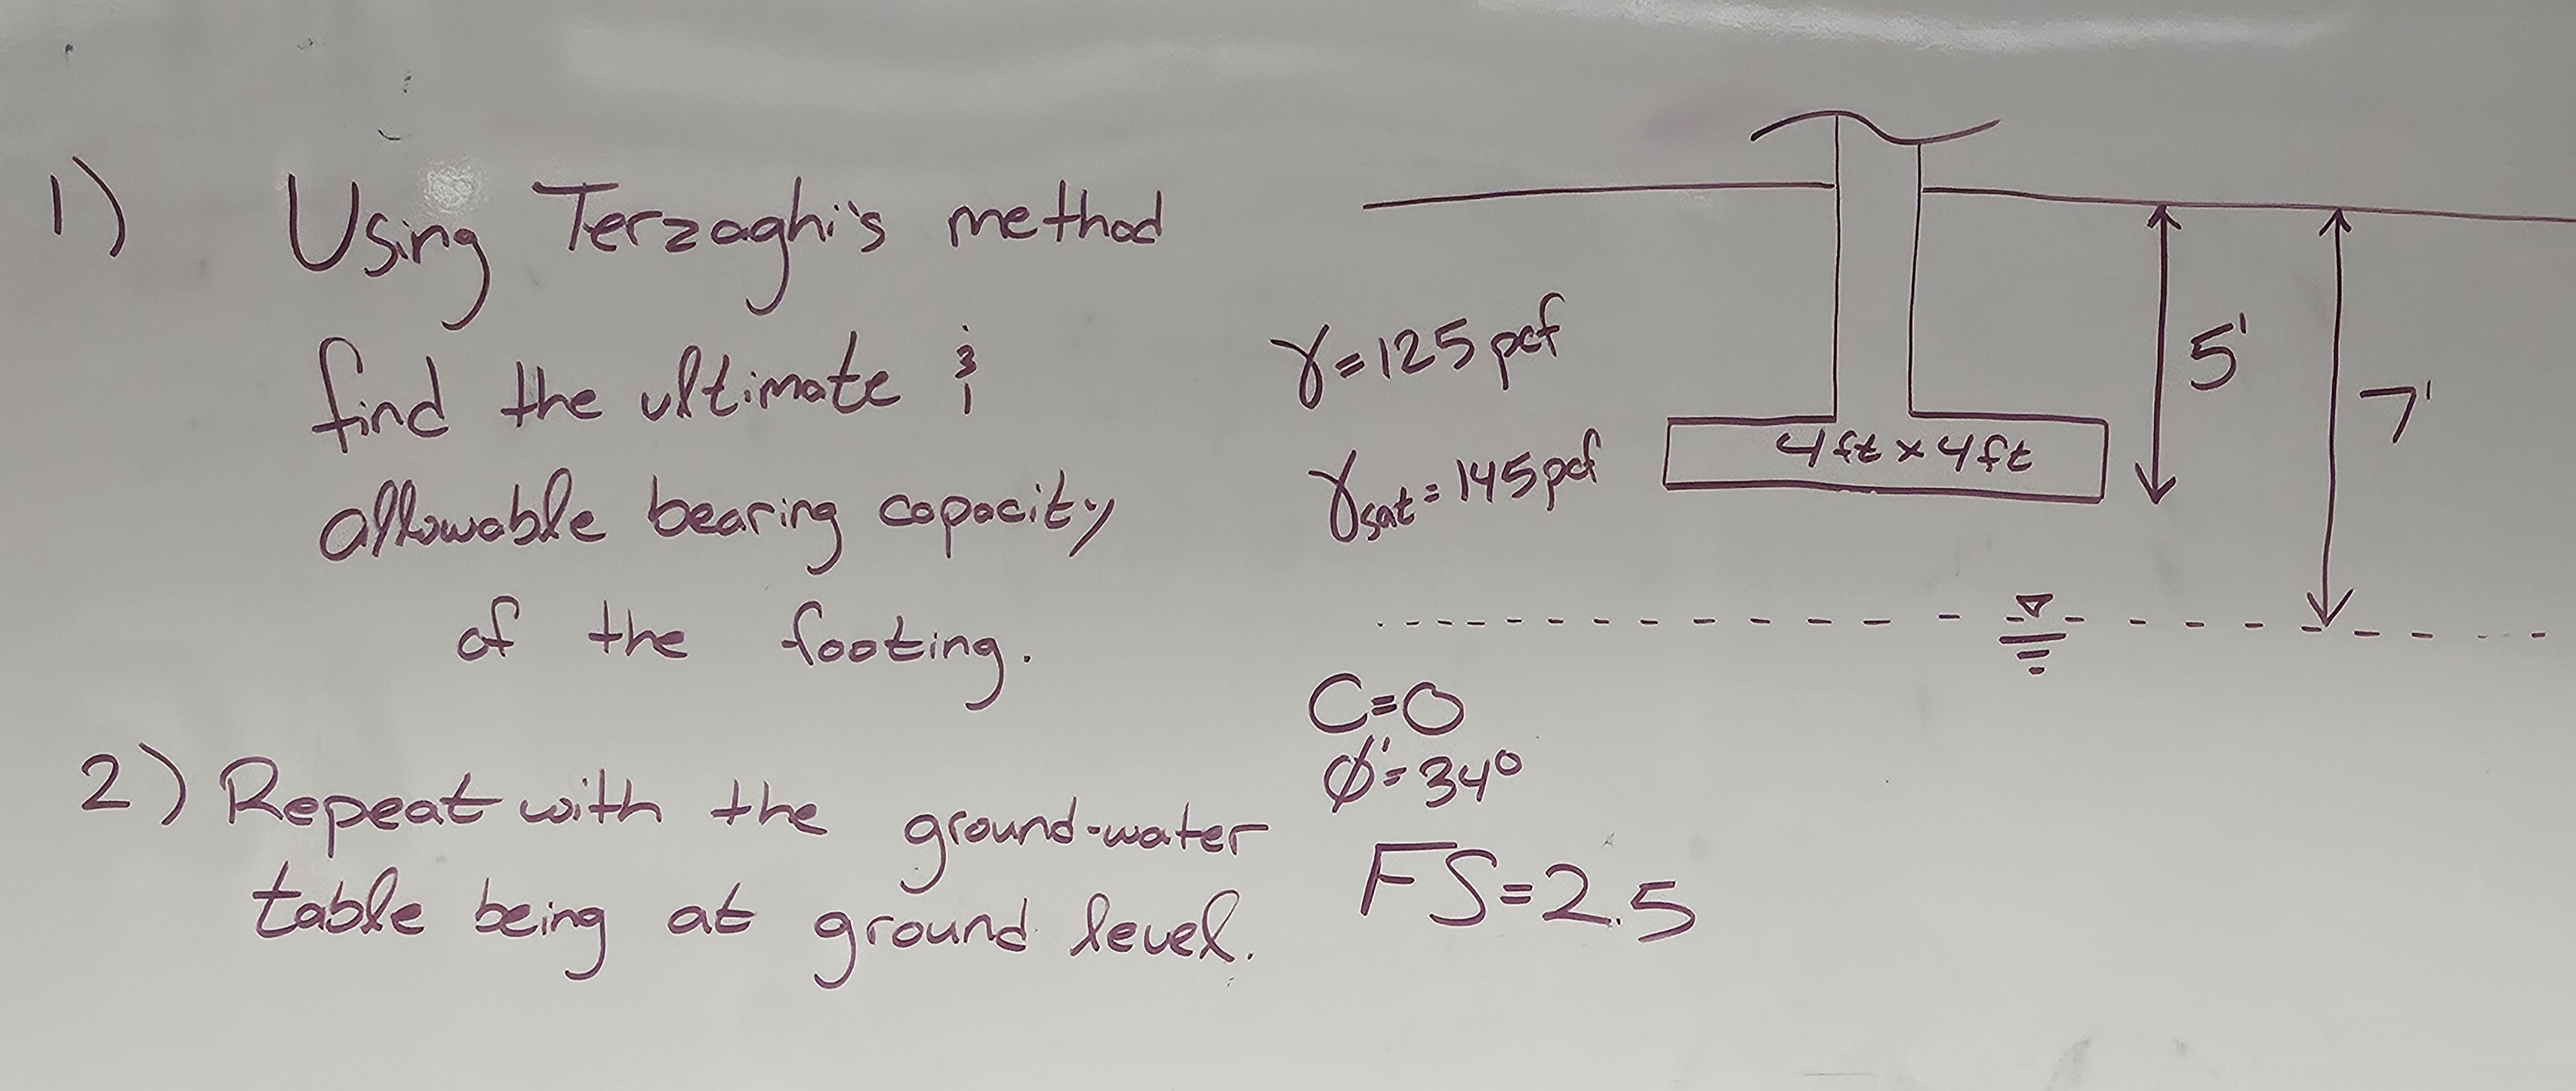 1) Using Terzaghi's method
find the ultimate &
allowable bearing capacity
of the footing.
2) Repeat with the ground-water
table being at ground level.
γ=125 pcf
γsat=145pcf
4ft x 4ft
5'
7'
C=0
ϕ'=34°
FS=2.5